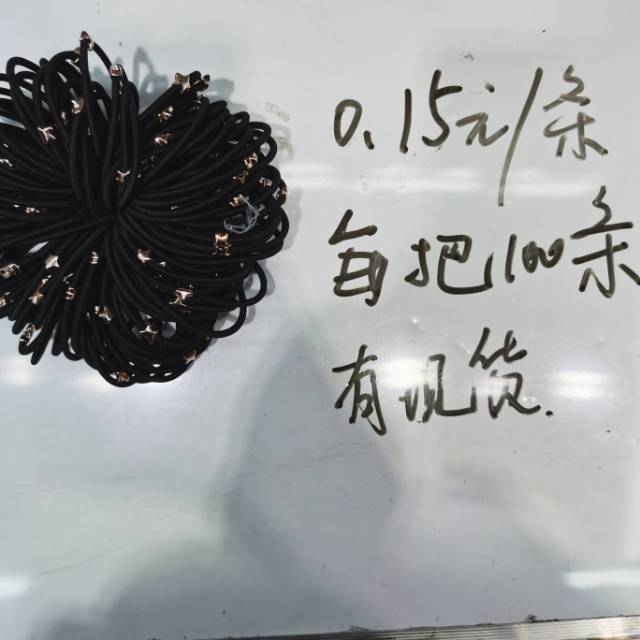 0.15元/条
每把100条
有现货.